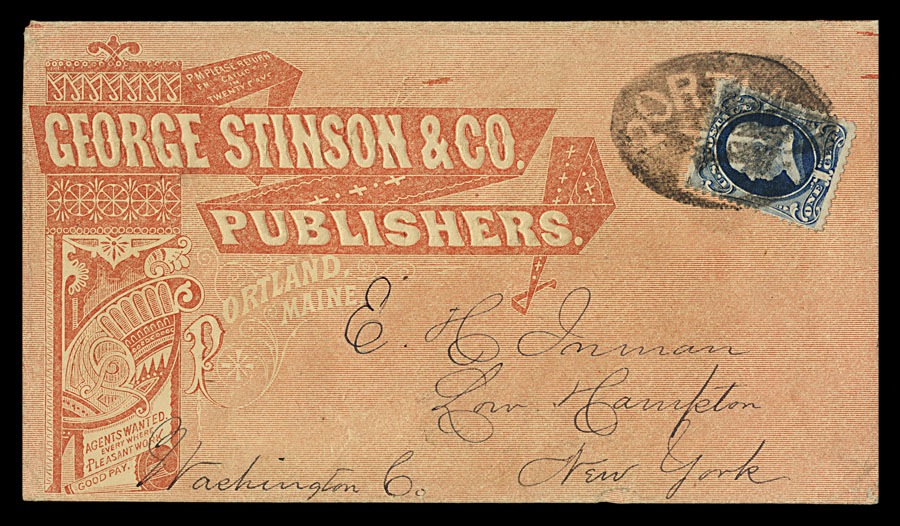 P.M. PLEASE RETURN
IN
TWENTY DAYS
GEORGE STINSON & CO.
PUBLISHERS.
PORTLAND,
MAINE
AGENTS WANTED
EVERYWHERE
PLEASANT WORK
GOOD PAY.
PORTL
ONE
E. H. Inman
Low Hampton
Washington Co.
New York